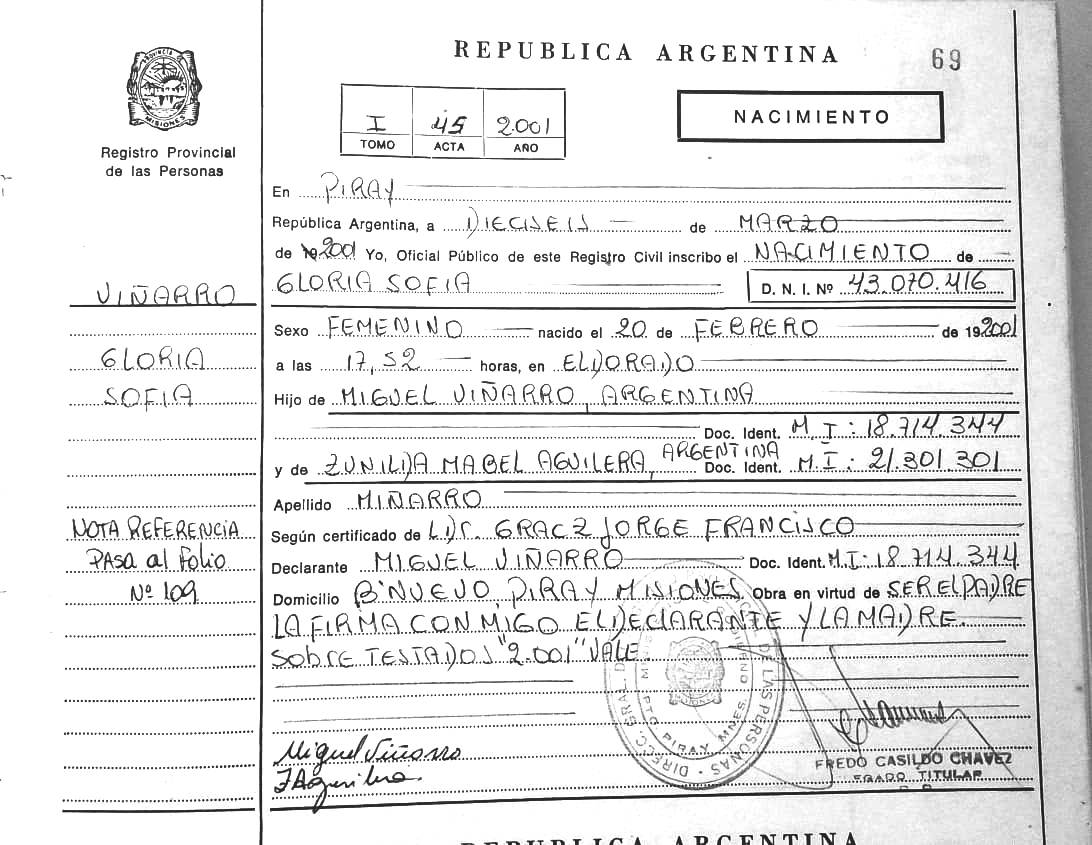 REPUBLICA ARGENTINA
69
PROVINCIA DE MISIONES
Registro Provincial
de las Personas
I 45 2.001
TOMO ACTA AÑO
NACIMIENTO
En PIRAY
República Argentina, a DIECISEIS de MARZO
de 2001 Yo, Oficial Público de este Registro Civil inscribo el NACIMIENTO de
GLORIA SOFIA D. N. I. Nº 43.070.416
Sexo FEMENINO nacido el 20 de FEBRERO de 192001
a las 17,52 horas, en ELDORADO
Hijo de MIGUEL VIÑARRO, ARGENTINA
Doc. Ident. M.I: 18.714.344
y de ZUNILDA MABEL AGUILERA, ARGENTINA Doc. Ident. M.I: 21.301.301
Apellido MIÑARRO
Según certificado de LIDC. GRACZ JORGE FRANCISCO
Declarante MIGUEL VIÑARRO Doc. Ident. M.I: 18.714.344
Domicilio Bº NUEVO, PIRAY MISIONES, Obra en virtud de SER EL PADRE
LA FIRMA CONMIGO EL DECLARANTE Y LA MADRE.
SObrE TESTADOS "2.001" VALE.
VIÑARRO
GLORIA
SOFIA
NOTA REFERENCIA
PASA al folio
Nº 109
Miguel Viñarro
ZAguilera.
DE LAS PERSONAS
DIREC. GRAL.
PIRAY, MNES.
FREDO CASILDO CHAVEZ
TITULAR
REPUBLICA ARGENTINA